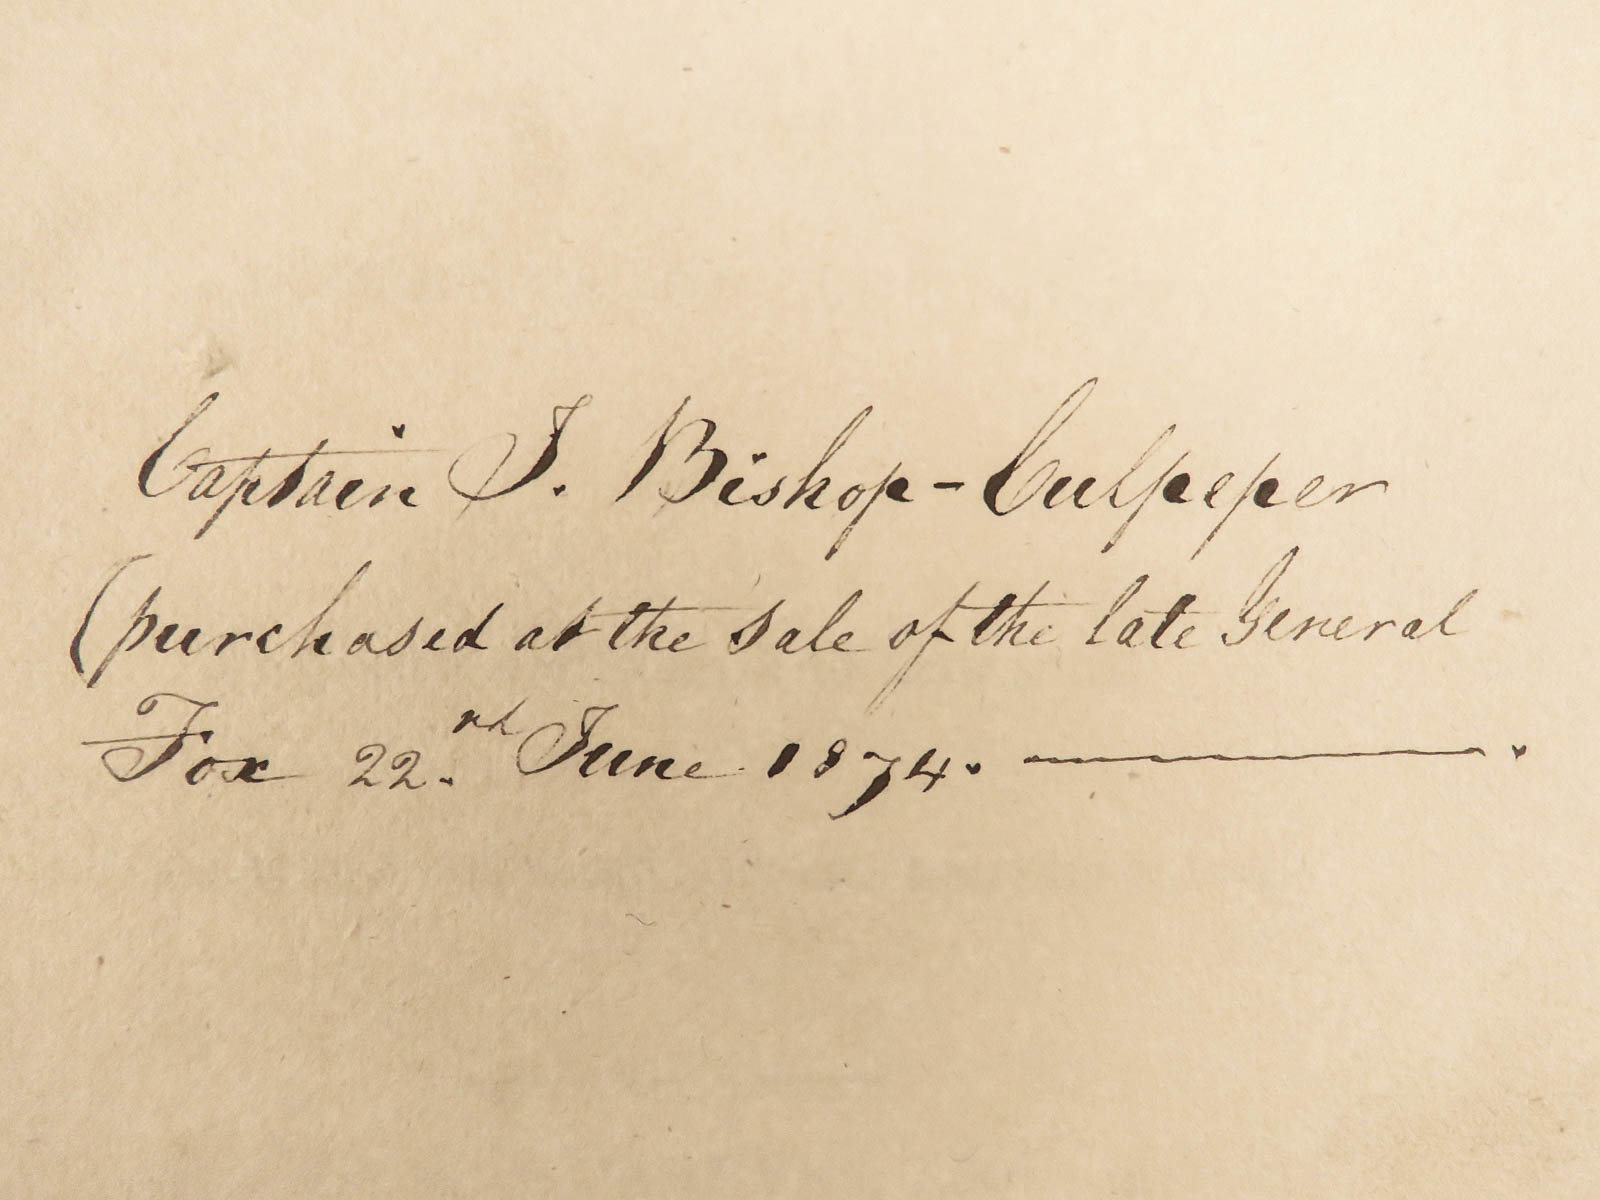 Captain J. Bishop-Culpeper
(purchased at the sale of the late General
Fox 22.nd June 1874. ———.